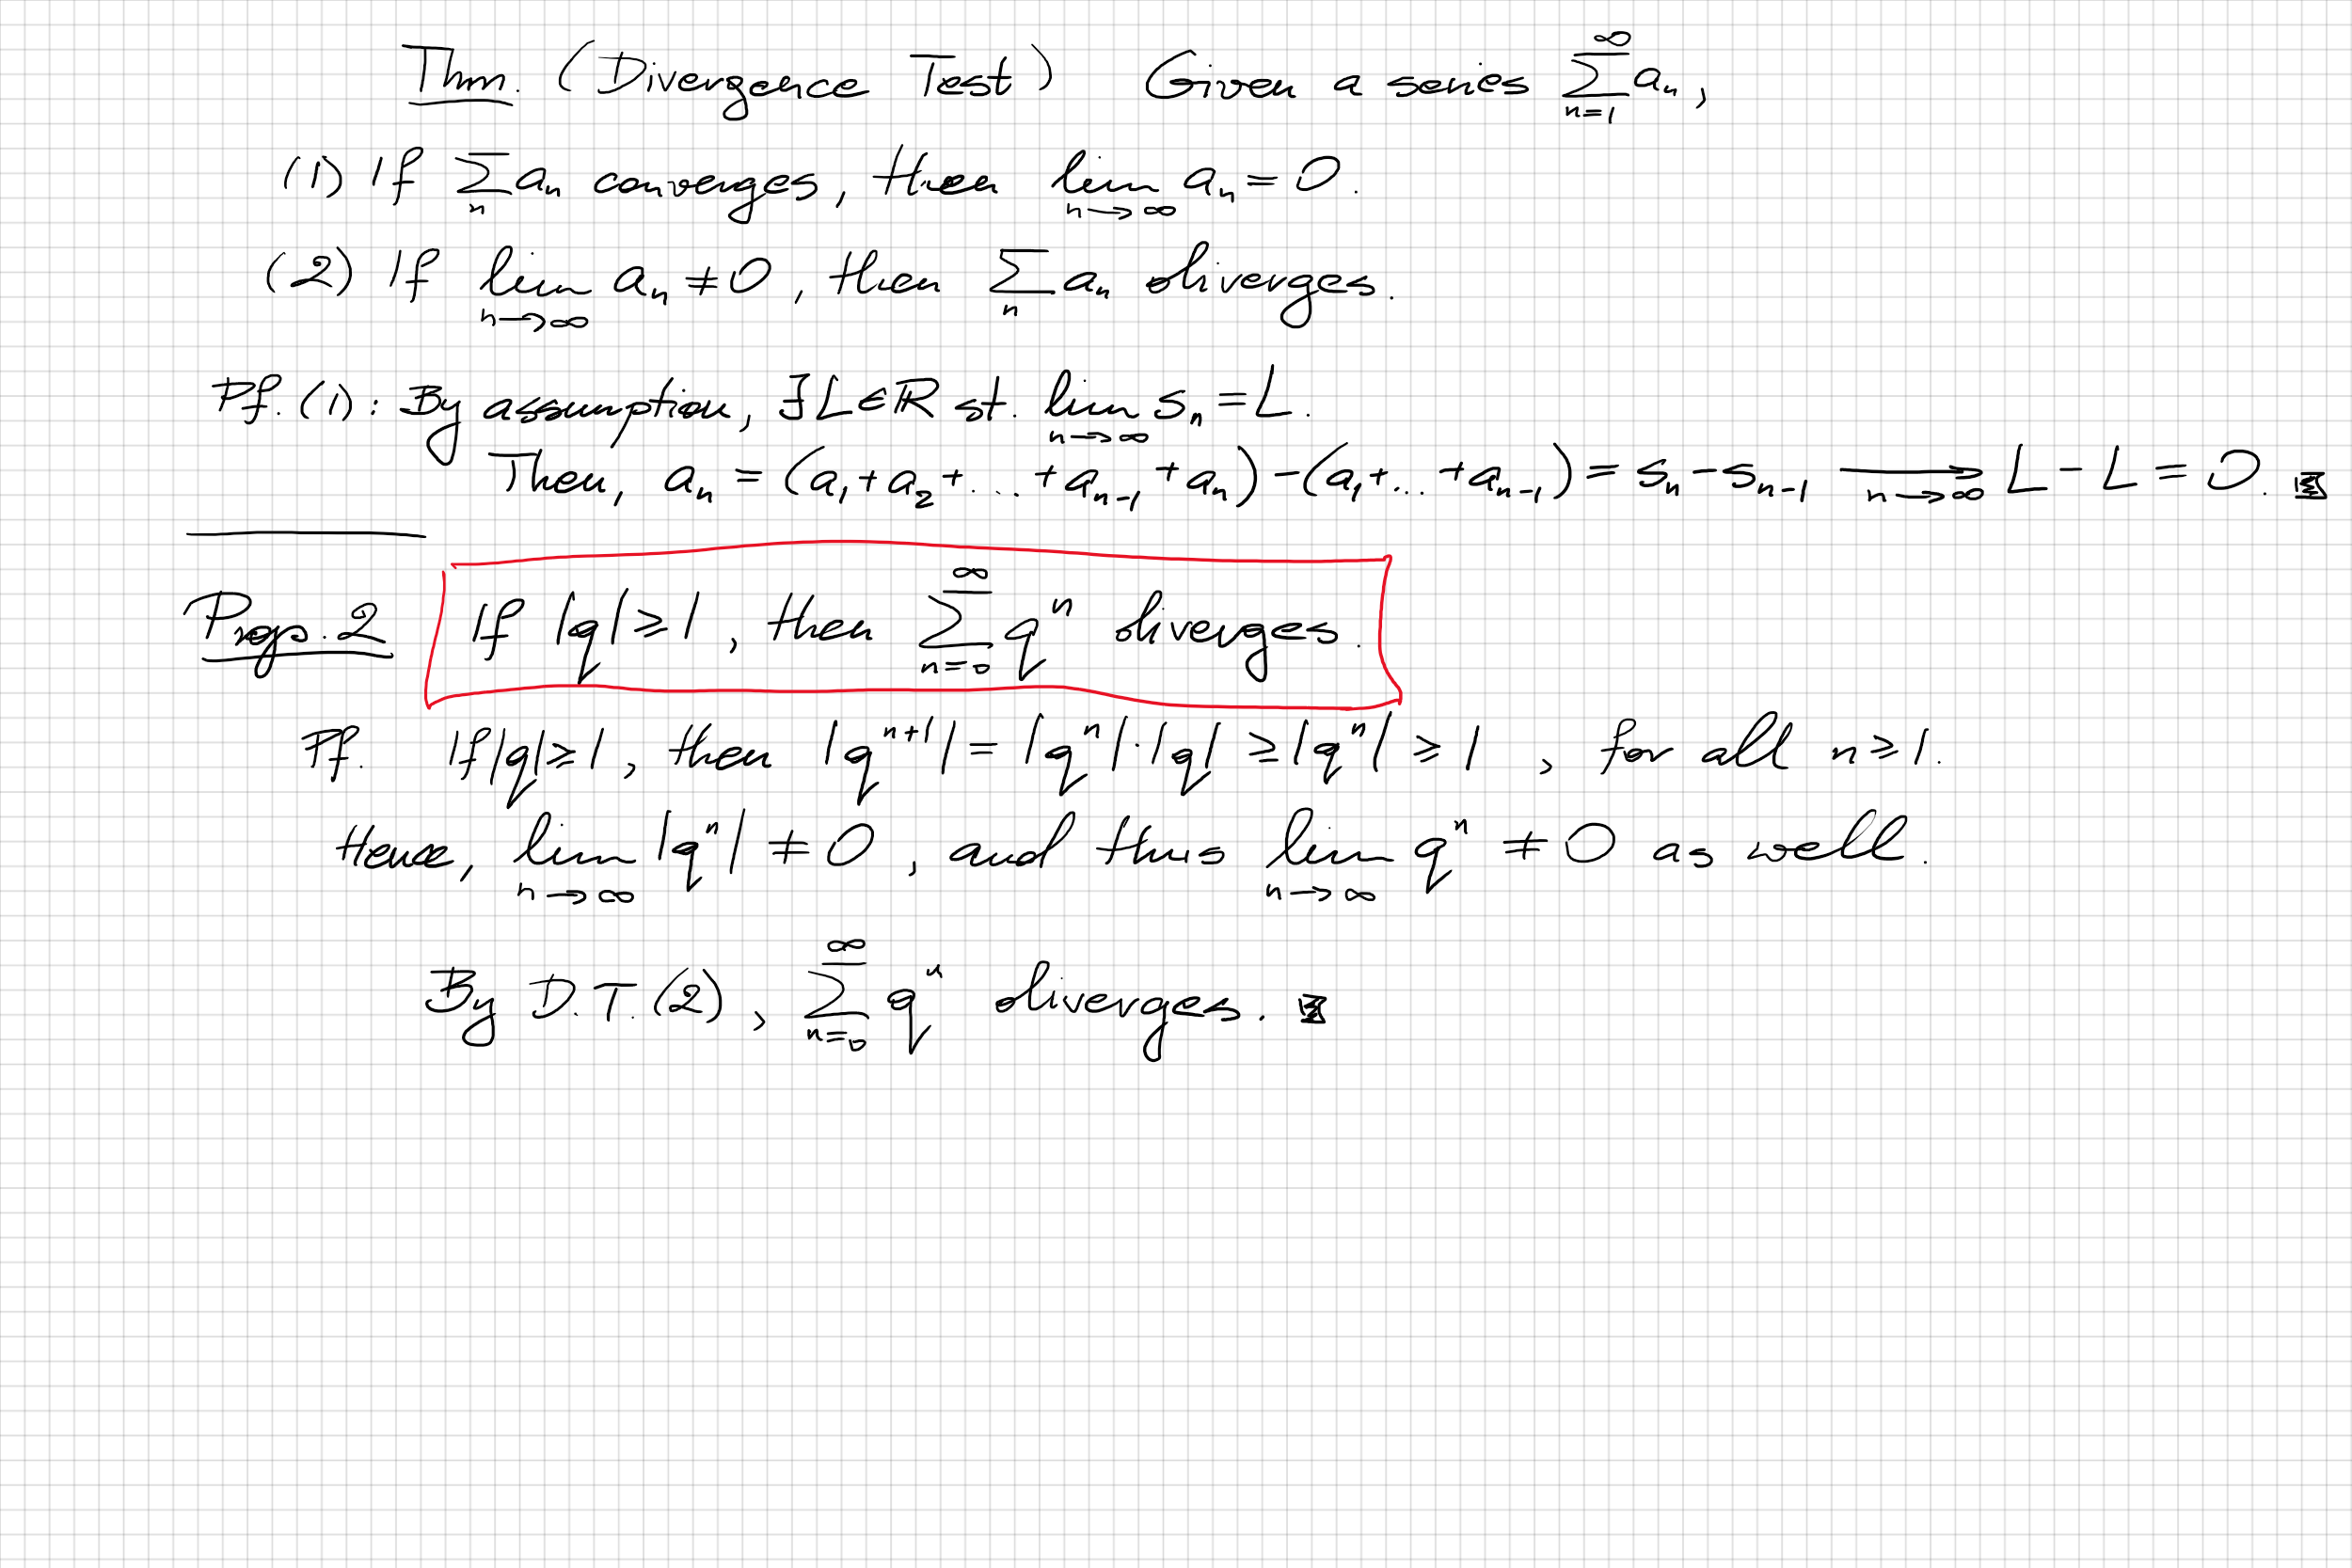 Thm. (Divergence Test) Given a series ∑_{n=1}^{∞} a_n,
(1) If ∑_n a_n converges, then lim_{n→∞} a_n = 0.
(2) If lim_{n→∞} a_n ≠ 0, then ∑_n a_n diverges.
Pf. (1): By assumption, ∃ L ∈ ℝ st. lim_{n→∞} s_n = L.
Then, a_n = (a_1 + a_2 + ... + a_{n-1} + a_n) - (a_1 + ... + a_{n-1}) = s_n - s_{n-1} ⟶_{n→∞} L - L = 0.
Prop. 2 If |q| ≥ 1, then ∑_{n=0}^{∞} q^n diverges.
Pf. If |q| ≥ 1, then |q^{n+1}| = |q^n|·|q| ≥ |q^n| ≥ 1, for all n ≥ 1.
Hence, lim_{n→∞} |q^n| ≠ 0, and thus lim_{n→∞} q^n ≠ 0 as well.
By D.T. (2), ∑_{n=0}^{∞} q^n diverges.